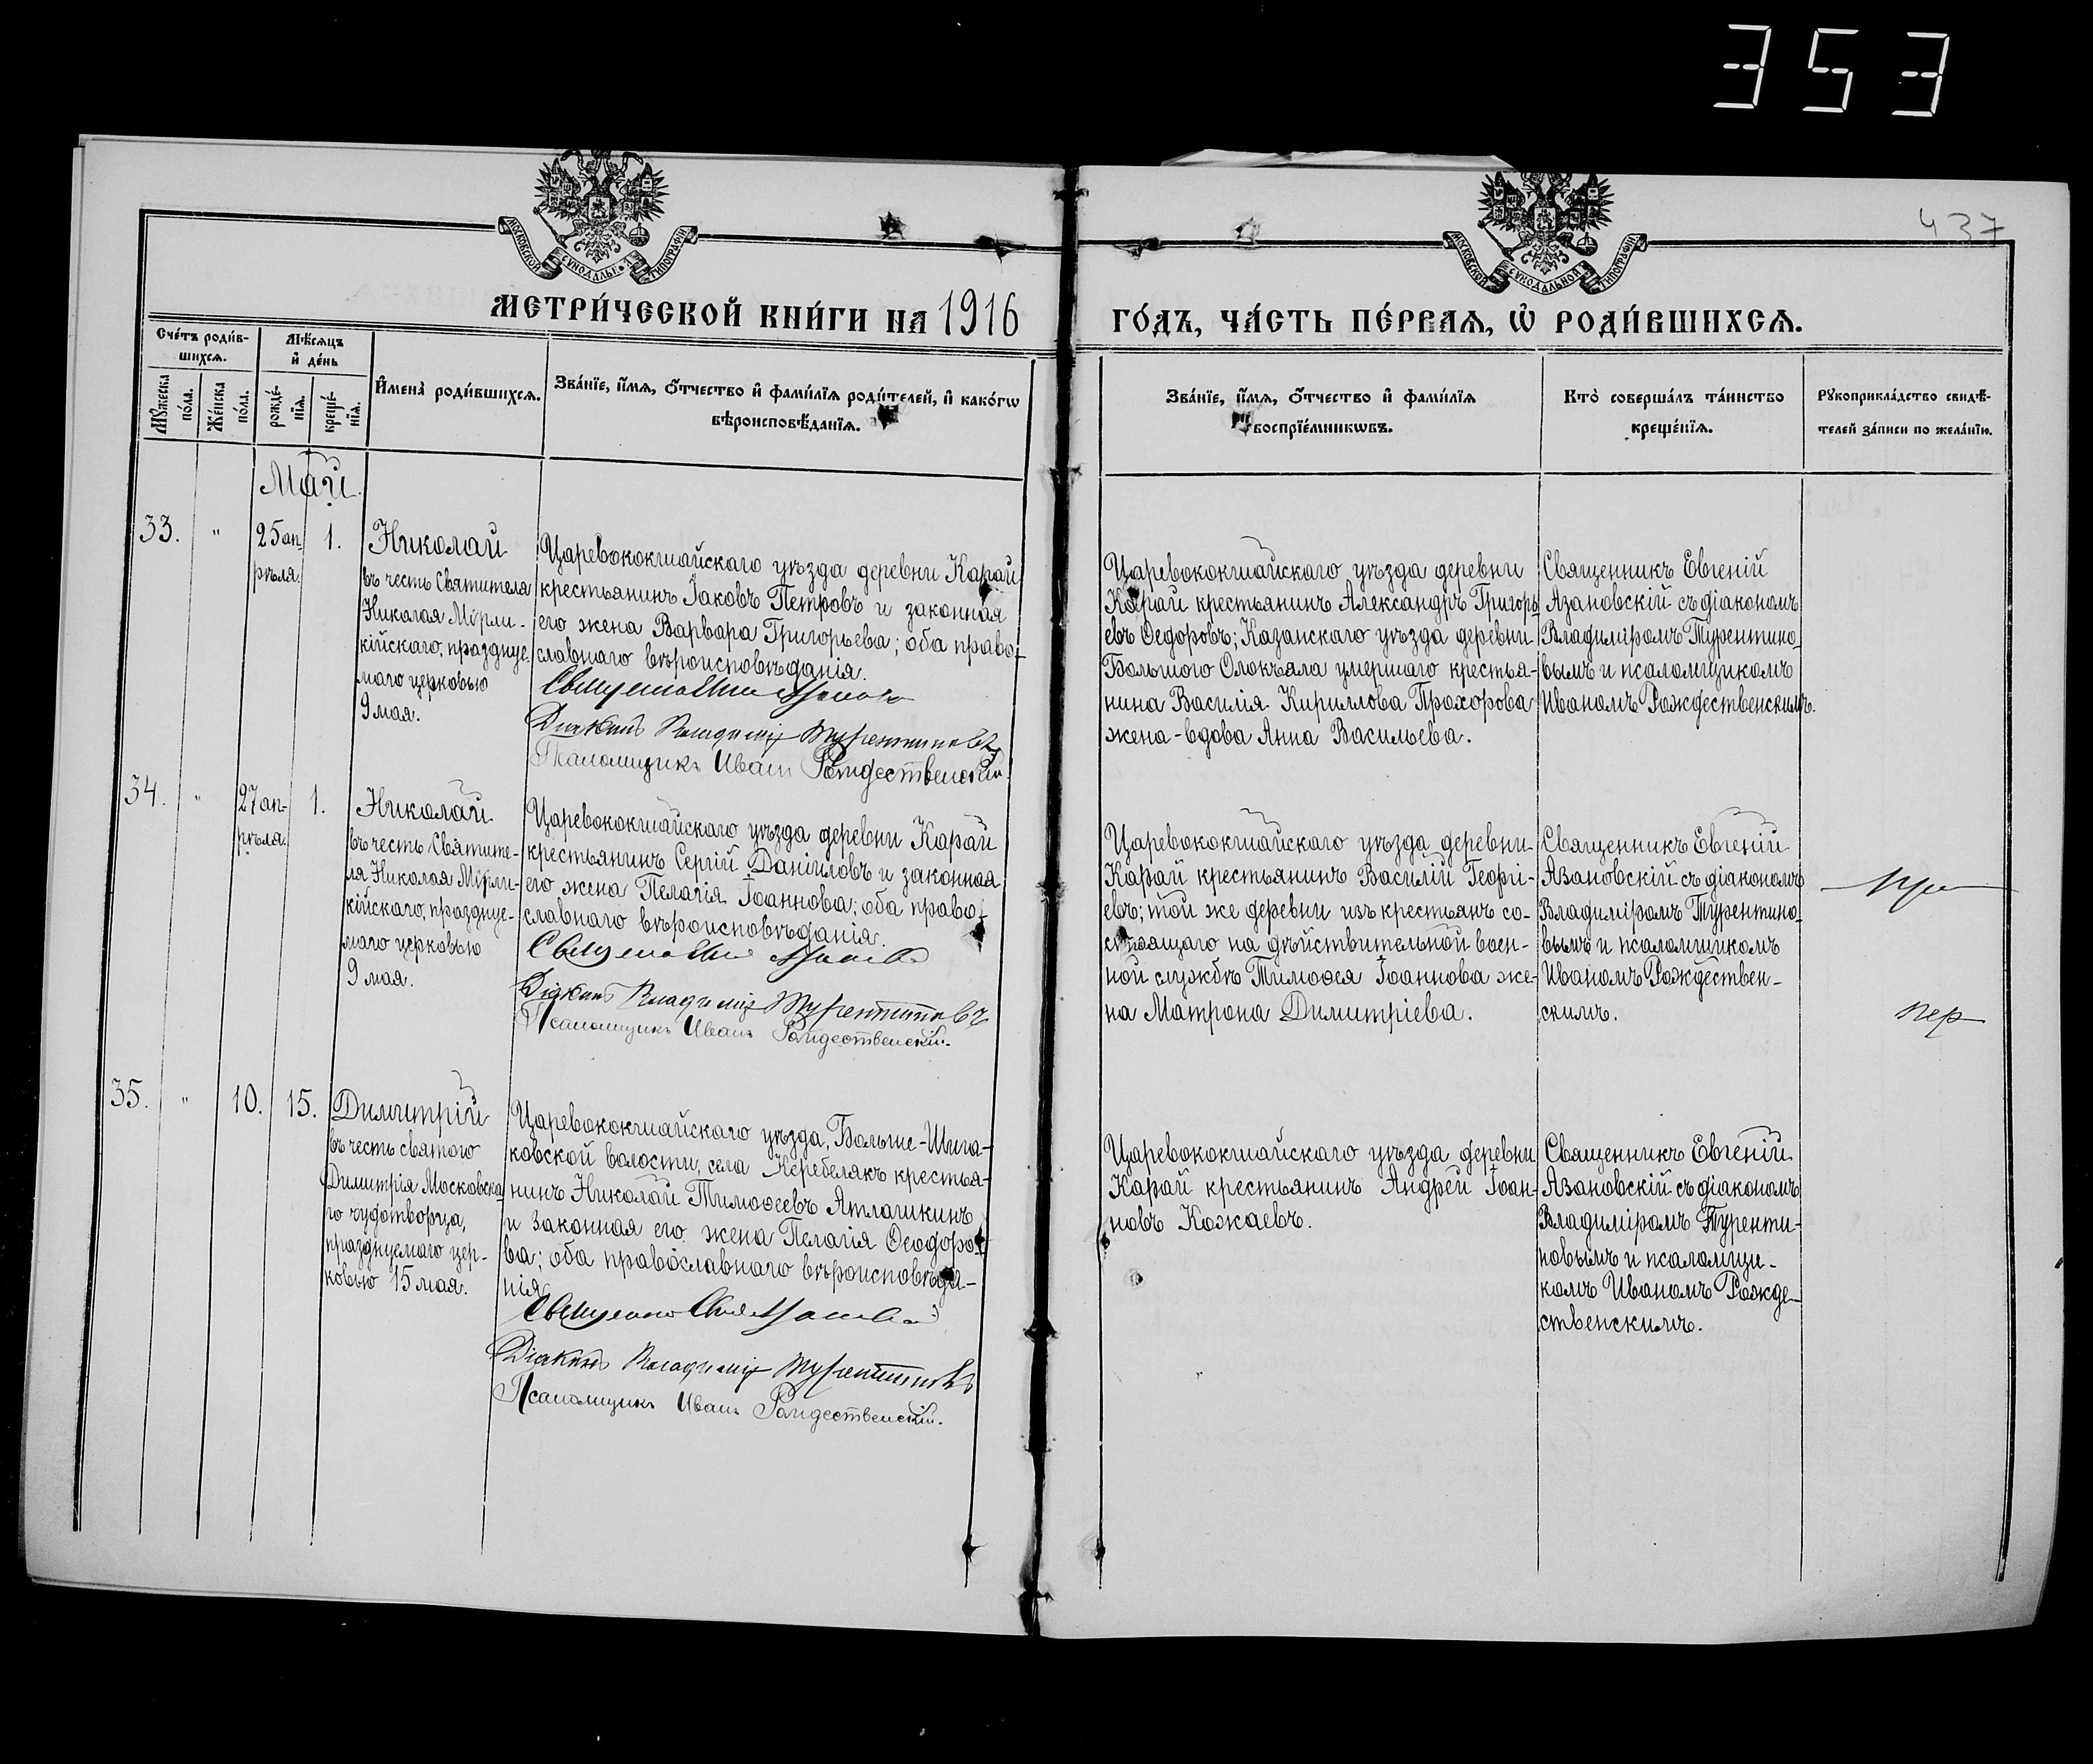 353
437
МОСКОВСКОЙ СУНОДАЛЬНОЙ ТИПОГРАФІИ
МОСКОВСКОЙ СУНОДАЛЬНОЙ ТИПОГРАФІИ
МЕТРИ́ЧЕСКОЙ КНИ́ГИ НА 1916
ГО́ДЪ, ЧА́СТЬ ПЕ́РВАѦ, Ѡ҆ РОДИ́ВШИХСѦ.
Сче́тъ роди́в-
шихсѧ.
Мѣ́сѧцъ
и҆ де́нь
Мꙋ́жеска
по́ла.
Же́нска
по́ла.
рожде́-
нїѧ.
креще́-
нїѧ.
И҆мена̀ роди́вшихсѧ.
Зва́нїе, и҆́мѧ, ѻ҆́тчество и҆ фами́лїѧ роди́телей, и҆ како́гѡ
вѣроисповѣ́данїѧ.
Зва́нїе, и҆́мѧ, ѻ҆́тчество и҆ фами́лїѧ
воспрїе́мникѡвъ.
Кто̀ соверша́лъ та́инство
креще́нїѧ.
Рꙋкоприкла́дство свидѣ́-
телей за́писи по жела́нїю.
Май.
33.
"
25 ап-
рѣля.
1.
Николай
въ честь Святителя
Николая Мѵрли-
кійскаго, празднуе-
маго церковью
9 мая.
Царевококшайскаго уѣзда деревни Карай
крестьянинъ Іаковъ Петровъ и законная
его жена Варвара Григорьева; оба право-
славнаго вѣроисповѣданія.
Діаконъ Владиміръ Турентиновъ
Псаломщикъ Иванъ Рождественскій.
Царевококшайскаго уѣзда деревни
Карай крестьянинъ Александръ Григорь-
евъ Ѳедоровъ; Казанскаго уѣзда деревни
Большого Олокъяла умершаго крестья-
нина Василія Кириллова Прохорова
жена-вдова Анна Васильева.
Священникъ Евгеній
Азановскій съ діакономъ
Владиміромъ Турентино-
вымъ и псаломщикомъ
Иваномъ Рождественскимъ.
34.
"
27 ап-
рѣля.
1.
Николай
въ честь Святите-
ля Николая Мѵрли-
кійскаго, празднуе-
маго церковью
9 мая.
Царевококшайскаго уѣзда деревни Карай
крестьянинъ Сергій Даніиловъ и законная
его жена Пелагія Іоаннова; оба право-
славнаго вѣроисповѣданія.
Діаконъ Владиміръ Турентиновъ
Псаломщикъ Иванъ Рождественскій.
Царевококшайскаго уѣзда деревни
Карай крестьянинъ Василій Георгі-
евъ; той же деревни изъ крестьянъ со-
стоящаго на дѣйствительной воен-
ной службѣ Тимоѳея Іоаннова же-
на Матрона Димитріева.
Священникъ Евгеній
Азановскій съ діакономъ
Владиміромъ Турентино-
вымъ и псаломщикомъ
Иваномъ Рождествен-
скимъ.
35.
"
10.
15.
Димитрій
въ честь святого
Димитрія Московска-
го чудотворца,
празднуемаго цер-
ковью 15 мая.
Царевококшайскаго уѣзда, Больше-Шига-
ковской волости, села Керебелякъ крестья-
нинъ Николай Тимоѳеевъ Атлашкинъ
и законная его жена Пелагія Ѳеодоро-
ва; оба православнаго вѣроисповѣда-
нія.
Діаконъ Владиміръ Турентиновъ
Псаломщикъ Иванъ Рождественскій.
Царевококшайскаго уѣзда деревни
Карай крестьянинъ Андрей Іоан-
новъ Кожаевъ.
Священникъ Евгеній
Азановскій съ діакономъ
Владиміромъ Туренти-
новымъ и псаломщи-
комъ Иваномъ Рожде-
ственскимъ.